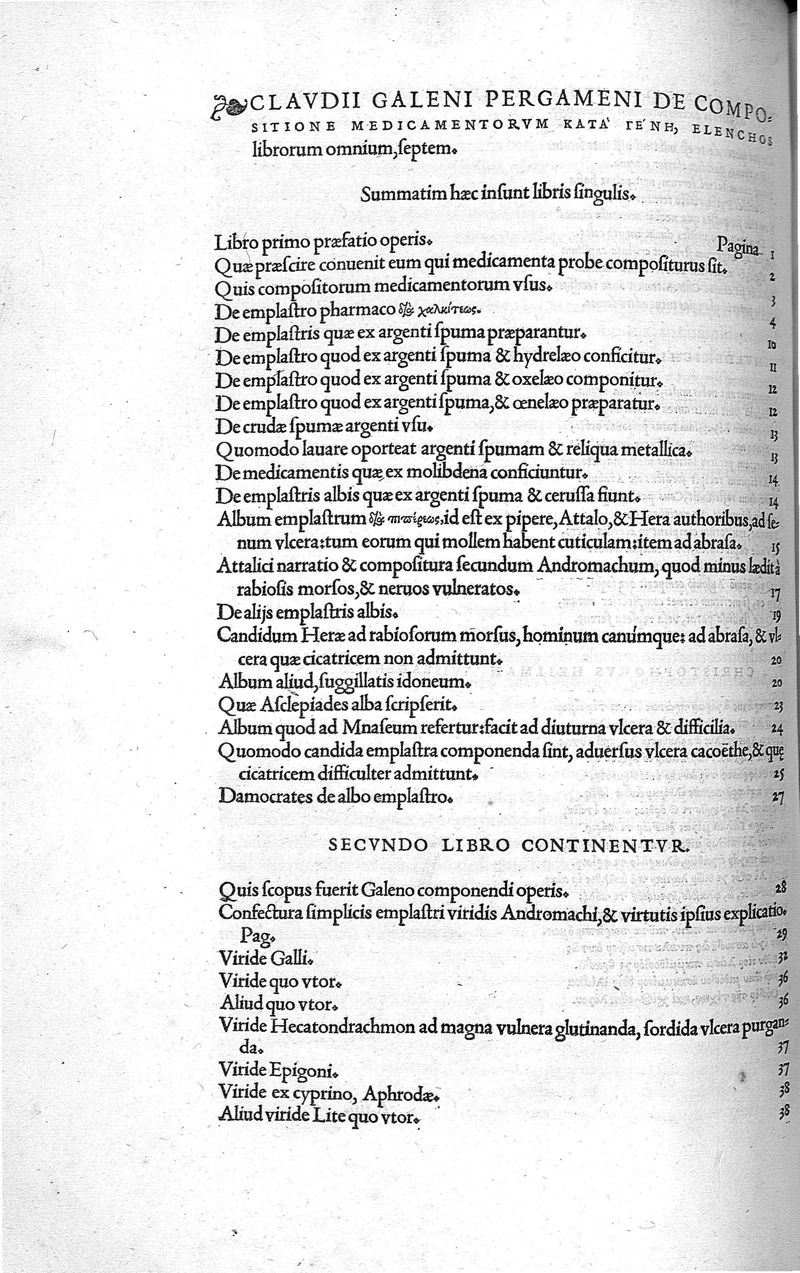 CLAVDII GALENI PERGAMENI DE COMPO-
SITIONE MEDICAMENTORVM ΚΑΤΑ' ΓΕ'ΝΗ, ELENCHOS
librorum omnium, ſeptem.
Summatim hæc inſunt libris ſingulis.
Libro primo præfatio operis. Pagina 1
Quæ præſcire conuenit eum qui medicamenta probe compoſiturus ſit. 2
Quis compoſitorum medicamentorum vſus. 3
De emplaſtro pharmaco διὰ χαλκίτεως. 4
De emplaſtris quæ ex argenti ſpuma præparantur. 10
De emplaſtro quod ex argenti ſpuma & hydrelæo conficitur. 11
De emplaſtro quod ex argenti ſpuma & oxelæo componitur. 12
De emplaſtro quod ex argenti ſpuma, & œnelæo præparatur. 12
De crudæ ſpumæ argenti vſu. 13
Quomodo lauare oporteat argenti ſpumam & reliqua metallica. 13
De medicamentis quæ ex molibdena conficiuntur. 14
De emplaſtris albis quæ ex argenti ſpuma & ceruſſa fiunt. 14
Album emplaſtrum διὰ πεπέρεως, id eſt ex pipere, Attalo, & Hera authoribus, ad ſe-
num vlcera: tum eorum qui mollem habent cuticulam: item ad abraſa. 15
Attalici narratio & compoſitura ſecundum Andromachum, quod minus lædit à
rabioſis morſos, & neruos vulneratos. 17
De alijs emplaſtris albis. 19
Candidum Heræ ad rabioſorum morſus, hominum canumque: ad abraſa, & vl-
cera quæ cicatricem non admittunt. 20
Album aliud, ſuggillatis idoneum. 20
Quæ Aſclepiades alba ſcripſerit. 23
Album quod ad Mnaſeum refertur: facit ad diuturna vlcera & difficilia. 24
Quomodo candida emplaſtra componenda ſint, aduerſus vlcera cacoëthe, & quę
cicatricem difficulter admittunt. 25
Damocrates de albo emplaſtro. 27
SECVNDO LIBRO CONTINENTVR.
Quis ſcopus fuerit Galeno componendi operis. 28
Confectura ſimplicis emplaſtri viridis Andromachi, & virtutis ipſius explicatio.
Pag. 29
Viride Galli. 32
Viride quo vtor. 36
Aliud quo vtor. 36
Viride Hecatondrachmon ad magna vulnera glutinanda, ſordida vlcera purgan-
da. 37
Viride Epigoni. 37
Viride ex cyprino, Aphrodæ. 38
Aliud viride Lite quo vtor. 38